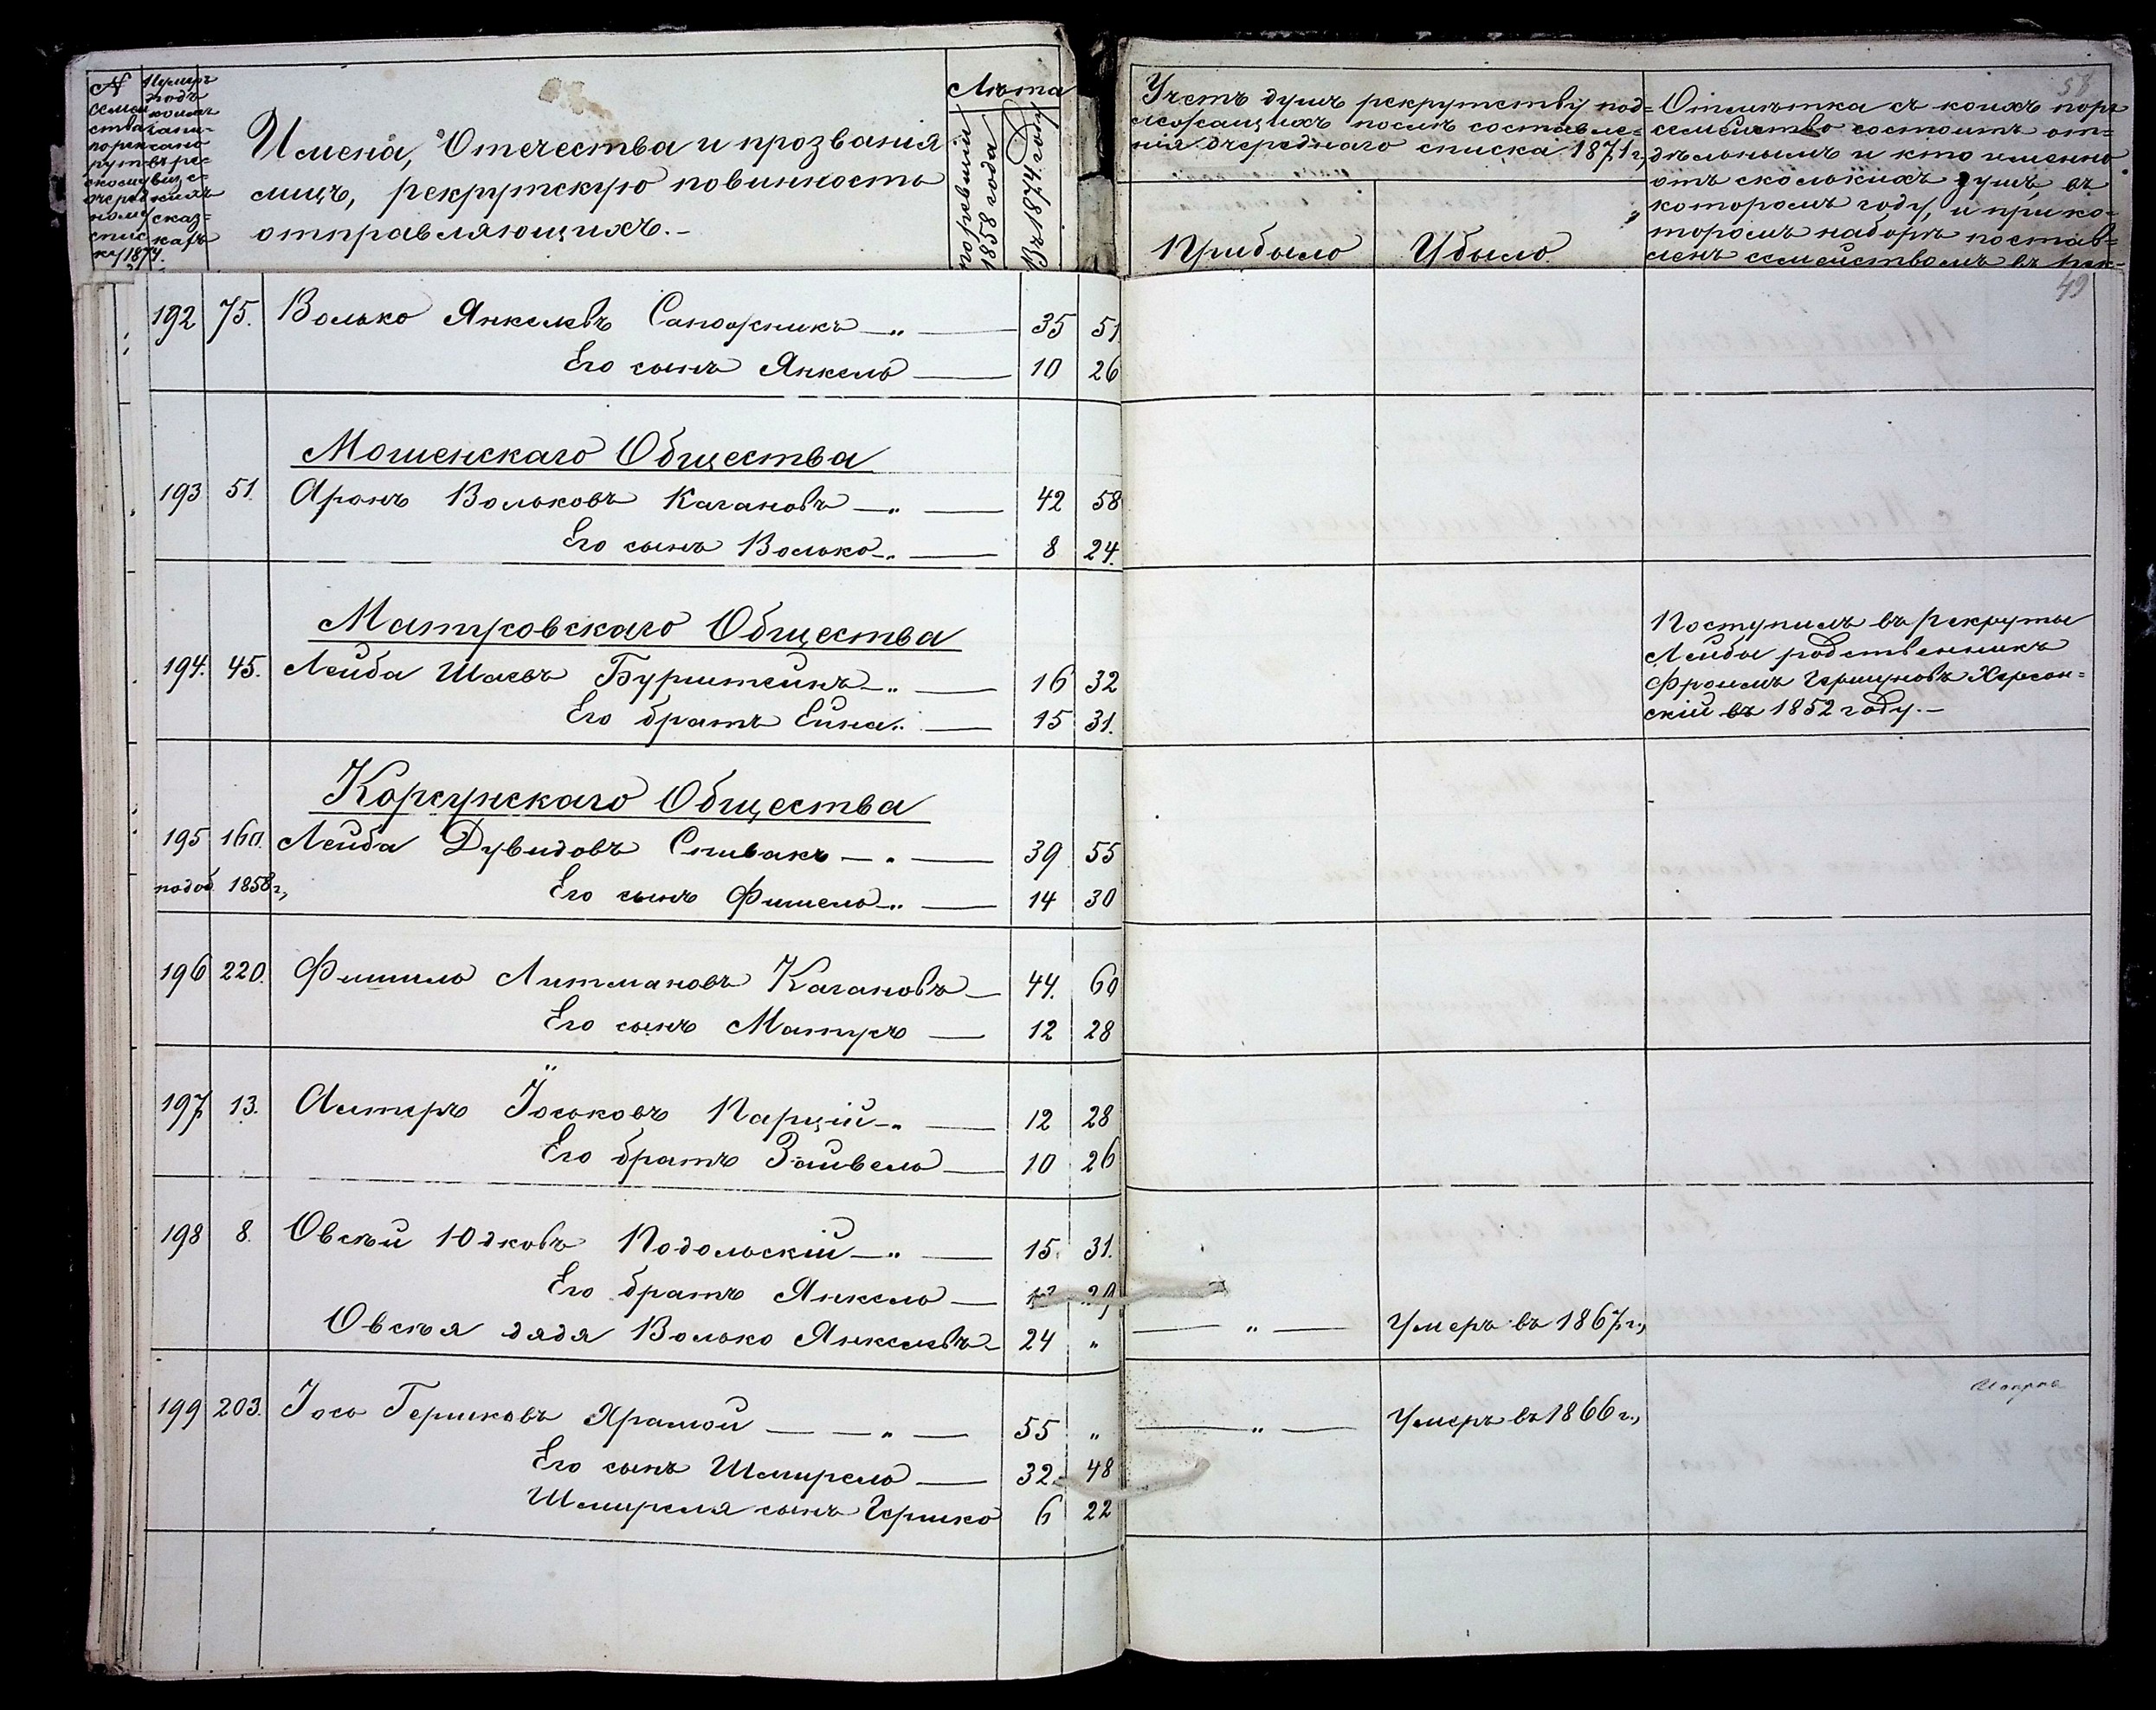 № семейства по рекрутскому очередному списку 1874.
Нумеръ подъ коимъ записано въ ревизскихъ сказкахъ
Имена, Отечества и прозванія
лицъ, рекрутскую повинность
отправляющихъ.-
Лѣта
по ревизіи 1858 года
Къ 1874 году
Учетъ душъ рекрутству под=
лежащихъ послѣ составле=
нія очереднаго списка 1871 г.,
Прибыло
Убыло
58
Отмѣтка съ коихъ поръ
семейство состоитъ от=
дѣльнымъ и кто именно
отъ сколькихъ душъ, въ
которомъ году, и при ко=
торомъ наборѣ постав=
ленъ семействомъ въ рек-
49
192 75. Волько Янкелевъ Сапожникъ —„— 35 51
Его сынъ Янкель — 10 26
Мошенскаго Общества
193 51. Аронъ Вольковъ Кагановъ —„— 42 58
Его сынъ Волько —„— 8 24.
Матровскаго Общества
194. 45. Лейба Шаевъ Бурштейнъ —„— 16 32
Его братъ Ейна „— 15 31.
Поступилъ въ рекруты
Лейбы родственникъ
Фроимъ Гершуновъ Херсон=
скій въ 1852 году.—
Корсунскаго Общества
195 160. Лейба Дувидовъ Спивакъ —„— 39 55
по доб. 1858 г., Его сынъ Фишель —„— 14 30
196 220. Фишиль Литмановъ Кагановъ — 44. 60
Его сынъ Матусъ — 12 28
197 13. Алтеръ Іоськовъ Парцій —„— 12 28
Его братъ Зайвель — 10 26
198 8. Овсѣй Юдковъ Подольскій —„— 15. 31.
Его братъ Янкель — 13 29
Овсѣя дядя Волько Янкелевъ — 24 „ —„— Умеръ въ 1867 г.,
199 203. Іось Гершковъ Храмой — — „ — 55 „ —„— Умеръ въ 1866 г.,
Его сынъ Шмирель — 32. 48
Шмиреля сынъ Гершко 6 22